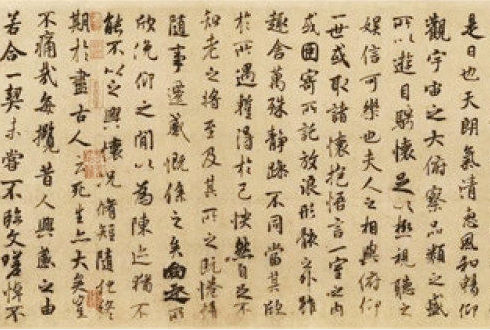 是日也天朗氣清惠風和暢仰
觀宇宙之大俯察品類之盛
所以遊目騁懷足以極視聽之
娛信可樂也夫人之相與俯仰
一世或取諸懷抱悟言一室之內
或因寄所託放浪形骸之外雖
趣舍萬殊靜躁不同當其欣
於所遇暫得於己怏然自足不
知老之將至及其所之既惓情
隨事遷感慨係之矣向之所
欣俛仰之閒以為陳迹猶不
能不以之興懷況脩短隨化終
期於盡古人云死生亦大矣豈
不痛哉每攬昔人興感之由
若合一契未嘗不臨文嗟悼不